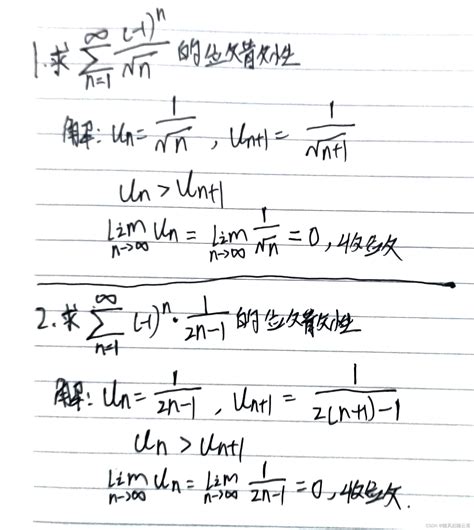 1.求 ∑_{n=1}^{∞} (-1)^n/√n 的敛散性
解: Un = 1/√n , Un+1 = 1/√(n+1)
Un > Un+1
lim_{n→∞} Un = lim_{n→∞} 1/√n = 0, 收敛
2.求 ∑_{n=1}^{∞} (-1)^n · 1/(2n-1) 的敛散性
解: Un = 1/(2n-1) , Un+1 = 1/(2(n+1)-1)
Un > Un+1
lim_{n→∞} Un = lim_{n→∞} 1/(2n-1) = 0, 收敛.